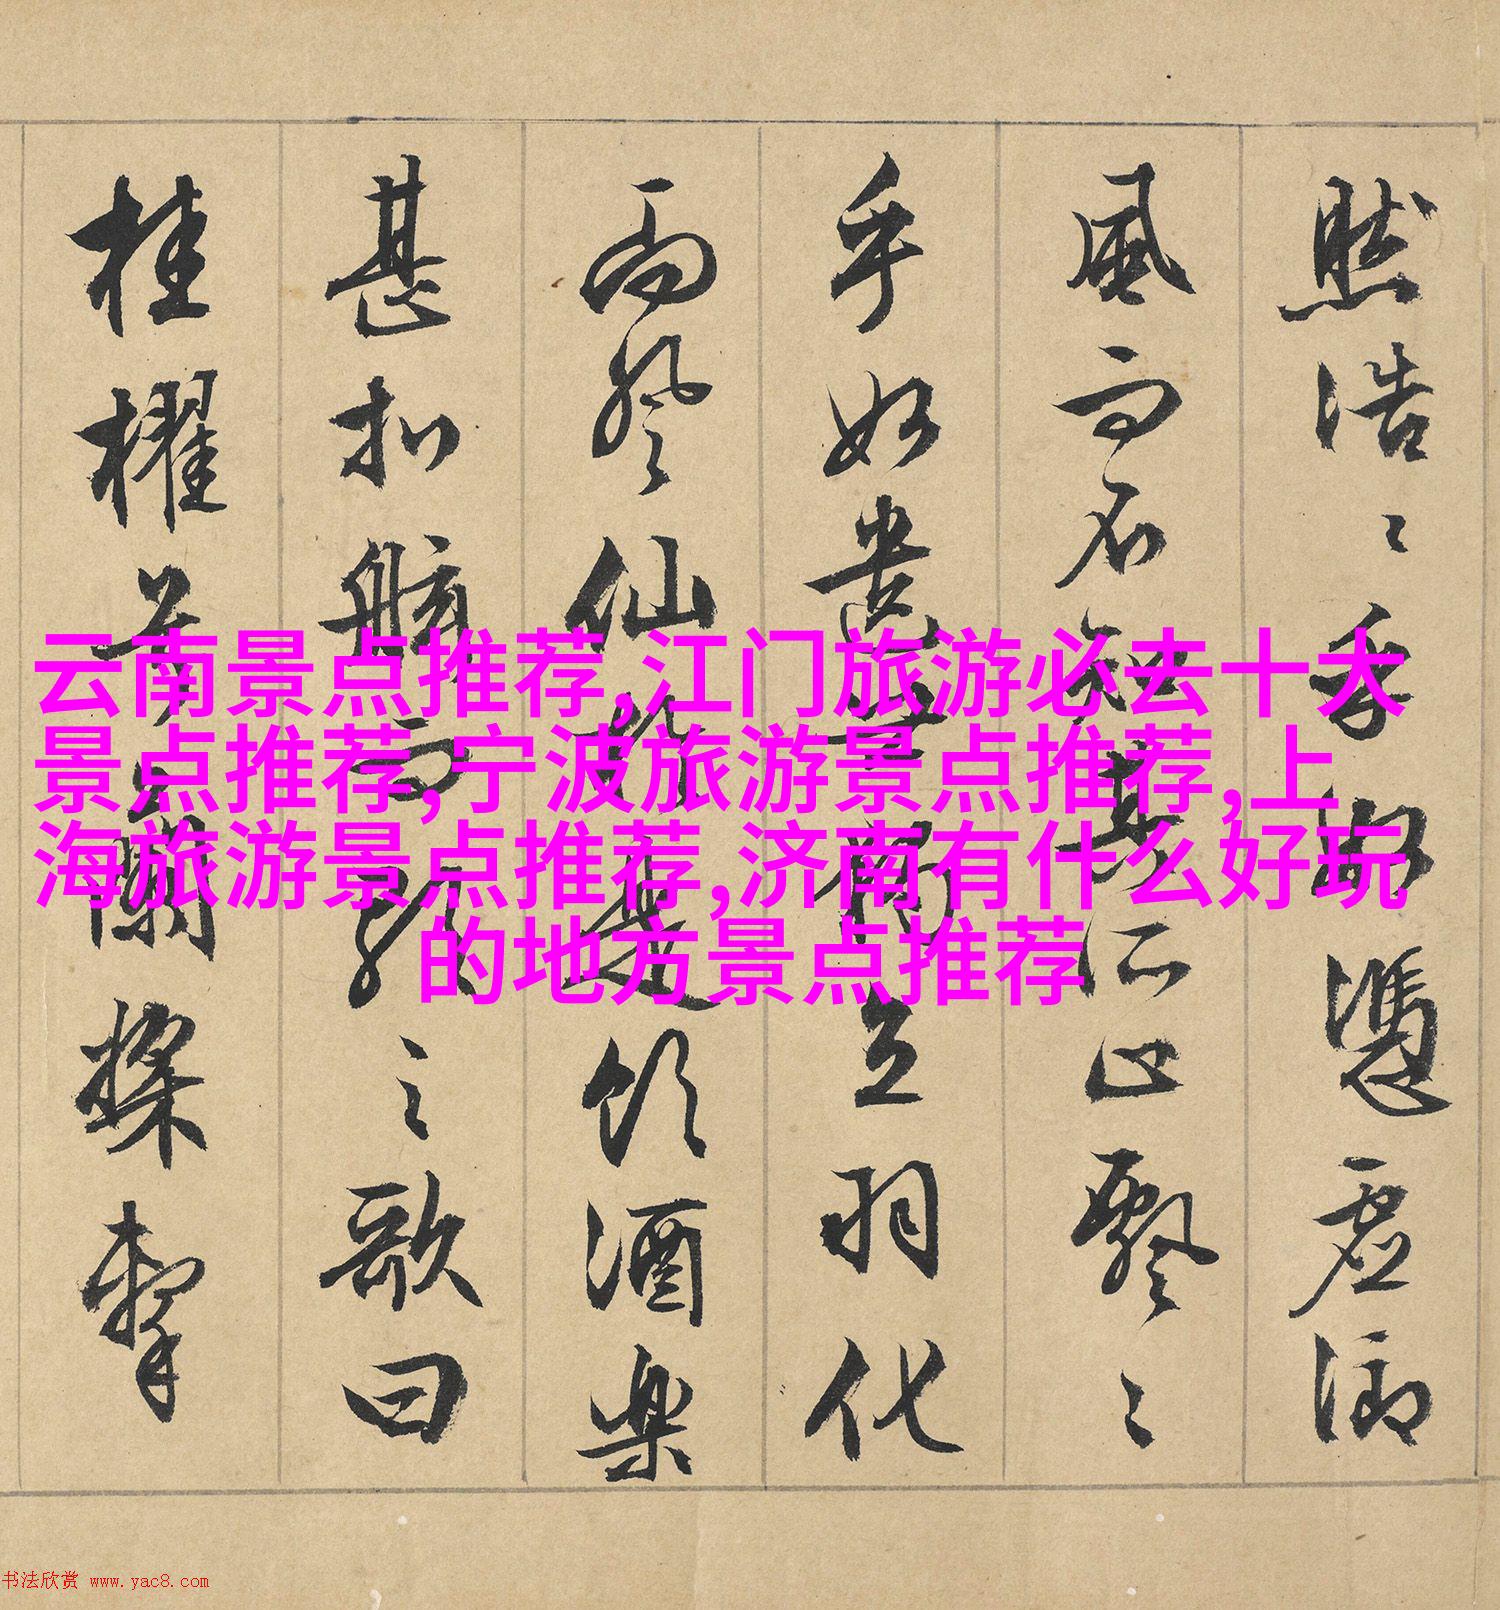 然浩〻乎如憑虛御
風而不知其所止飄〻
乎如遺世獨立羽化
而登仙於是飲酒樂
甚扣舷而歌之歌曰
桂櫂兮蘭槳擊
云南景点推荐,江门旅游必去十大
景点推荐,宁波旅游景点推荐,上
海旅游景点推荐,济南有什么好玩
的地方景点推荐
书法欣赏 www.yac8.com